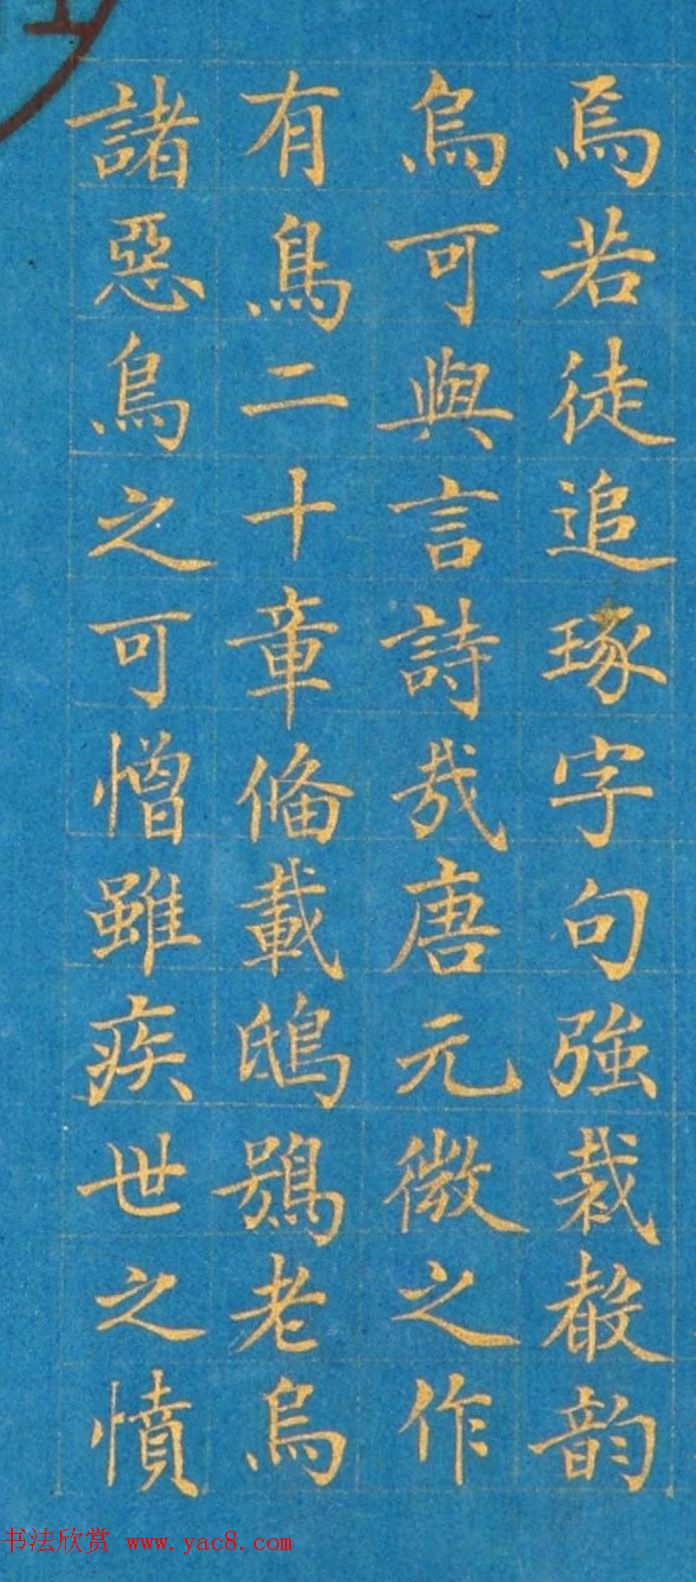 焉若徒追琢字句強裁聲韵
烏可與言詩哉唐元微之作
有鳥二十章俻載鴟鴞老烏
諸惡鳥之可憎雖疾世之憤
书法欣赏 www.yac8.com